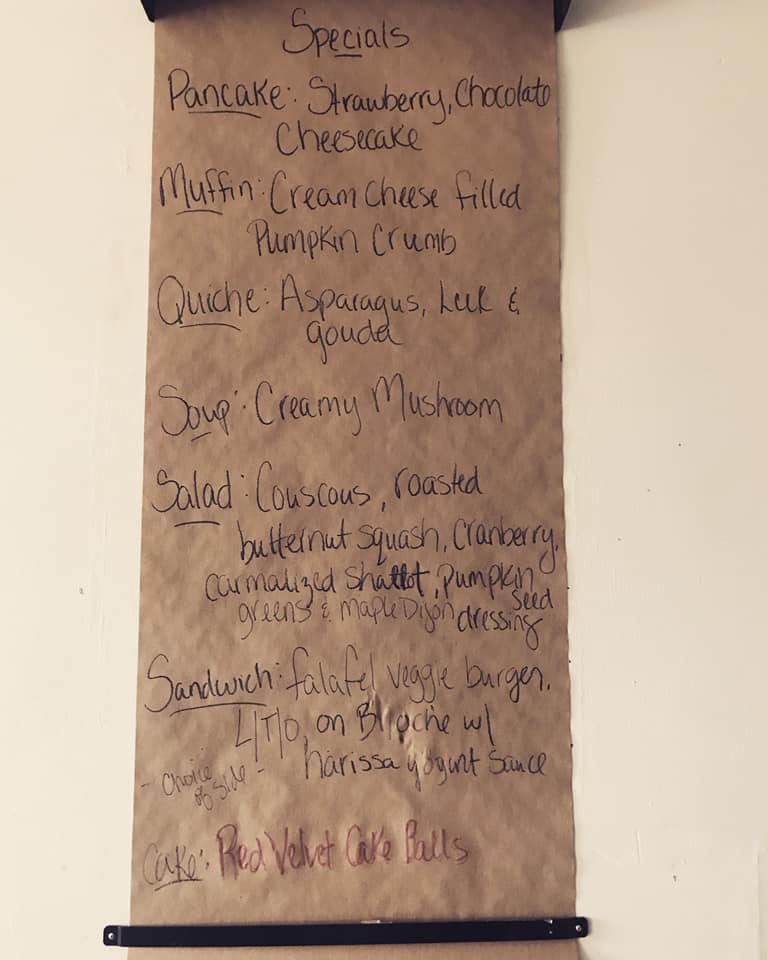 Specials
Pancake: Strawberry, Chocolate
Cheesecake
Muffin: Cream cheese filled
Pumpkin Crumb
Quiche: Asparagus, Leek &
gouda
Soup: Creamy Mushroom
Salad: Couscous, roasted
butternut squash, Cranberry,
carmalized shallot, Pumpkin seed
greens & maple Dijon dressing
Sandwich: falafel veggie burger,
L/T/O, on Brioche w/
harissa yogurt sauce
- Choice of side -
Cake: Red Velvet Cake Balls